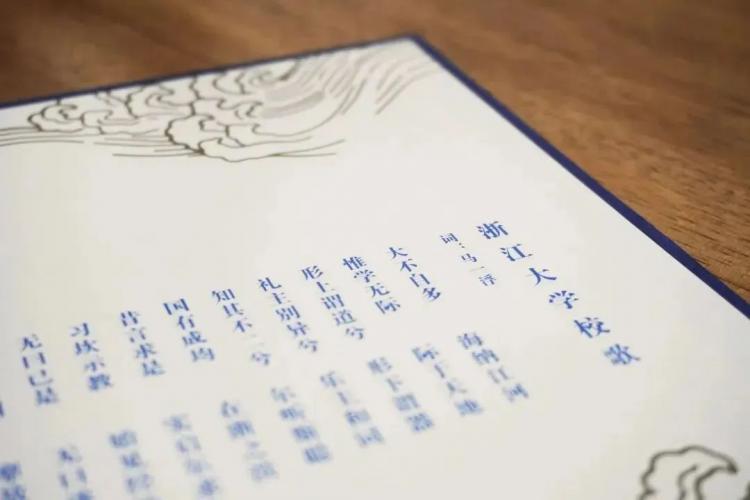 浙江大学校歌
词:马一浮
大不自多 海纳江河
惟学无际 际于天地
形上谓道兮 形下谓器
礼主别异兮 乐主和同
知其不二兮 尔听斯聪
国有成均 在浙之滨
昔言求是 实启尔求
习坎示教 始见经
无曰已是 无曰